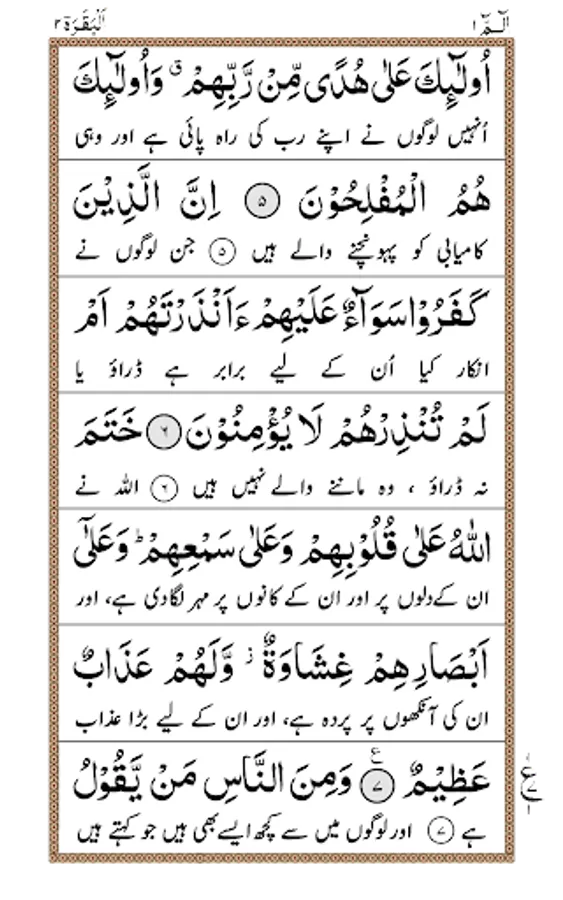 الٓـمّٓ ۱
اَلْبَقَرَة ۲
اُولٰٓئِكَ عَلٰى هُدًى مِّنْ رَّبِّهِمْ ۗ وَاُولٰٓئِكَ
اُنہیں لوگوں نے اپنے رب کی راہ پائی ہے اور وہی
هُمُ الْمُفْلِحُوْنَ ۵ اِنَّ الَّذِيْنَ
کامیابی کو پہونچنے والے ہیں ۵ جن لوگوں نے
كَفَرُوْا سَوَآءٌ عَلَيْهِمْ ءَاَنْذَرْتَهُمْ اَمْ
انکار کیا اُن کے لیے برابر ہے ڈراؤ یا
لَمْ تُنْذِرْهُمْ لَا يُؤْمِنُوْنَ ۶ خَتَمَ
نہ ڈراؤ ، وہ ماننے والے نہیں ہیں ۶ اللہ نے
اللهُ عَلٰى قُلُوْبِهِمْ وَعَلٰى سَمْعِهِمْ ؕ وَعَلٰٓى
ان کے دلوں پر اور ان کے کانوں پر مہر لگادی ہے، اور
اَبْصَارِهِمْ غِشَاوَةٌ ز وَّلَهُمْ عَذَابٌ
ان کی آنکھوں پر پردہ ہے، اور ان کے لیے بڑا عذاب
عَظِيْمٌ ۷ ع وَمِنَ النَّاسِ مَنْ يَّقُوْلُ
ہے ۷ اور لوگوں میں سے کچھ ایسے بھی ہیں جو کہتے ہیں
ع
۱